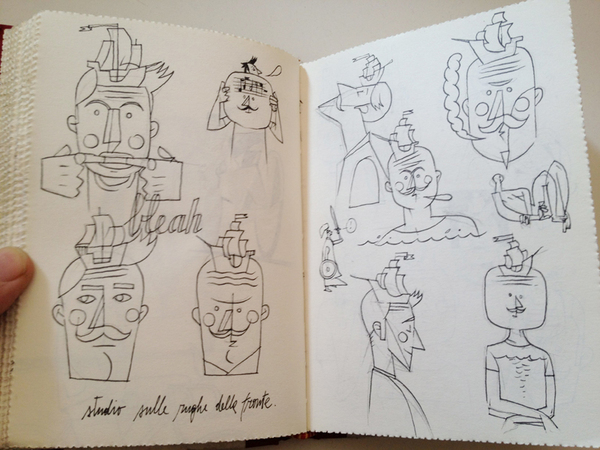 bleah
studio sulle rughe della fronte.